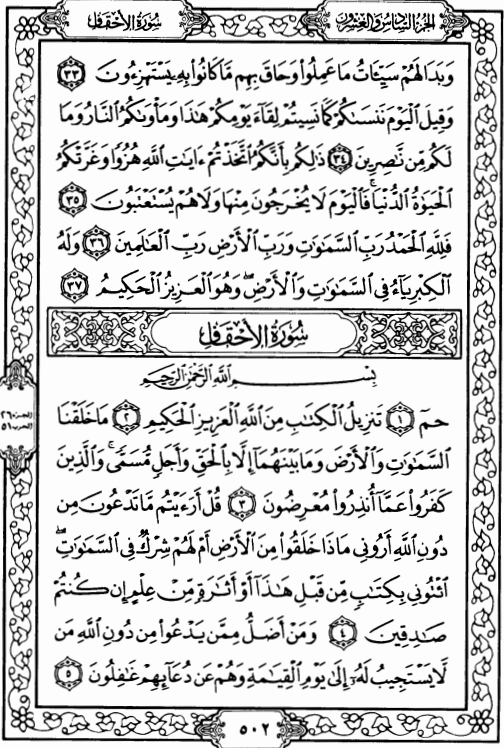 الجزء السادس والعشرون سورة الأحقاف
وَبَدَا لَهُمْ سَيِّـَٔاتُ مَا عَمِلُوا۟ وَحَاقَ بِهِم مَّا كَانُوا۟ بِهِۦ يَسْتَهْزِءُونَ ٣٣
وَقِيلَ ٱلْيَوْمَ نَنسَىٰكُمْ كَمَا نَسِيتُمْ لِقَآءَ يَوْمِكُمْ هَٰذَا وَمَأْوَىٰكُمُ ٱلنَّارُ وَمَا
لَكُم مِّن نَّٰصِرِينَ ٣٤ ذَٰلِكُم بِأَنَّكُمُ ٱتَّخَذْتُمْ ءَايَٰتِ ٱللَّهِ هُزُوًا وَغَرَّتْكُمُ
ٱلْحَيَوٰةُ ٱلدُّنْيَا ۚ فَٱلْيَوْمَ لَا يُخْرَجُونَ مِنْهَا وَلَا هُمْ يُسْتَعْتَبُونَ ٣٥
فَلِلَّهِ ٱلْحَمْدُ رَبِّ ٱلسَّمَٰوَٰتِ وَرَبِّ ٱلْأَرْضِ رَبِّ ٱلْعَٰلَمِينَ ٣٦ وَلَهُ
ٱلْكِبْرِيَآءُ فِى ٱلسَّمَٰوَٰتِ وَٱلْأَرْضِ ۖ وَهُوَ ٱلْعَزِيزُ ٱلْحَكِيمُ ٣٧
سورة الأحقاف
بِسْمِ ٱللَّهِ ٱلرَّحْمَٰنِ ٱلرَّحِيمِ
حمٓ ١ تَنزِيلُ ٱلْكِتَٰبِ مِنَ ٱللَّهِ ٱلْعَزِيزِ ٱلْحَكِيمِ ٢ مَا خَلَقْنَا
ٱلسَّمَٰوَٰتِ وَٱلْأَرْضَ وَمَا بَيْنَهُمَآ إِلَّا بِٱلْحَقِّ وَأَجَلٍ مُّسَمًّى ۚ وَٱلَّذِينَ
كَفَرُوا۟ عَمَّآ أُنذِرُوا۟ مُعْرِضُونَ ٣ قُلْ أَرَءَيْتُم مَّا تَدْعُونَ مِن
دُونِ ٱللَّهِ أَرُونِى مَاذَا خَلَقُوا۟ مِنَ ٱلْأَرْضِ أَمْ لَهُمْ شِرْكٌ فِى ٱلسَّمَٰوَٰتِ ۖ
ٱئْتُونِى بِكِتَٰبٍ مِّن قَبْلِ هَٰذَآ أَوْ أَثَٰرَةٍ مِّنْ عِلْمٍ إِن كُنتُمْ
صَٰدِقِينَ ٤ وَمَنْ أَضَلُّ مِمَّن يَدْعُوا۟ مِن دُونِ ٱللَّهِ مَن
لَّا يَسْتَجِيبُ لَهُۥٓ إِلَىٰ يَوْمِ ٱلْقِيَٰمَةِ وَهُمْ عَن دُعَآئِهِمْ غَٰفِلُونَ ٥
الجزء ٢٦
الحزب ٥١
٥٠٢